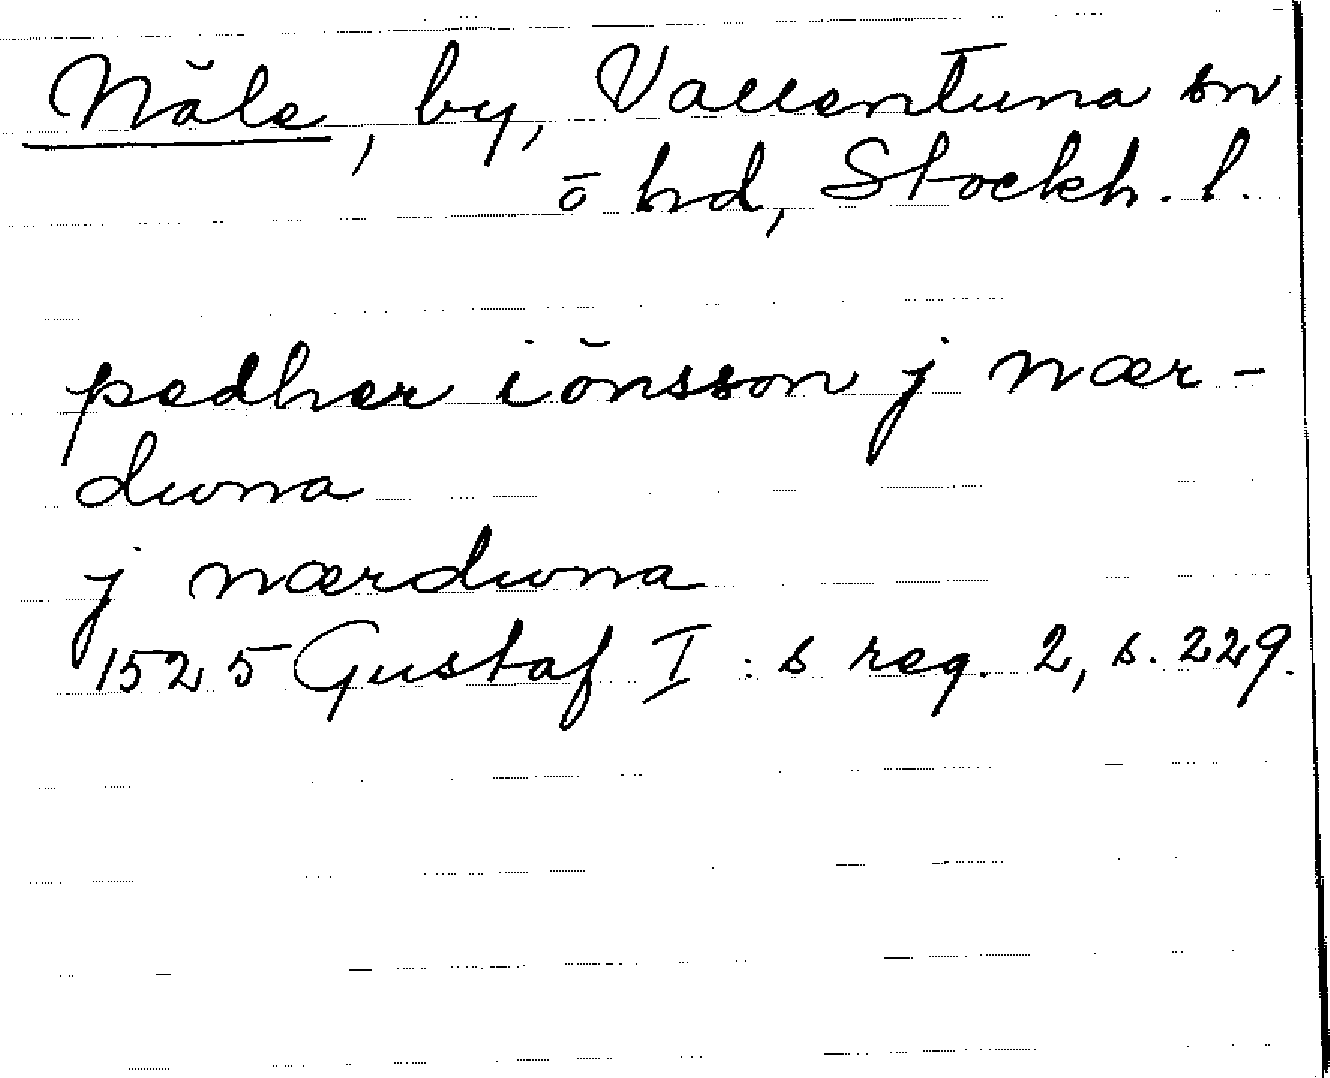 Nåle, by, Vallentuna sn
o hd, Stockh. l.
pedher iönsson j nær-
duna
j nærduna
1525 Gustaf I:s reg. 2, s. 229.